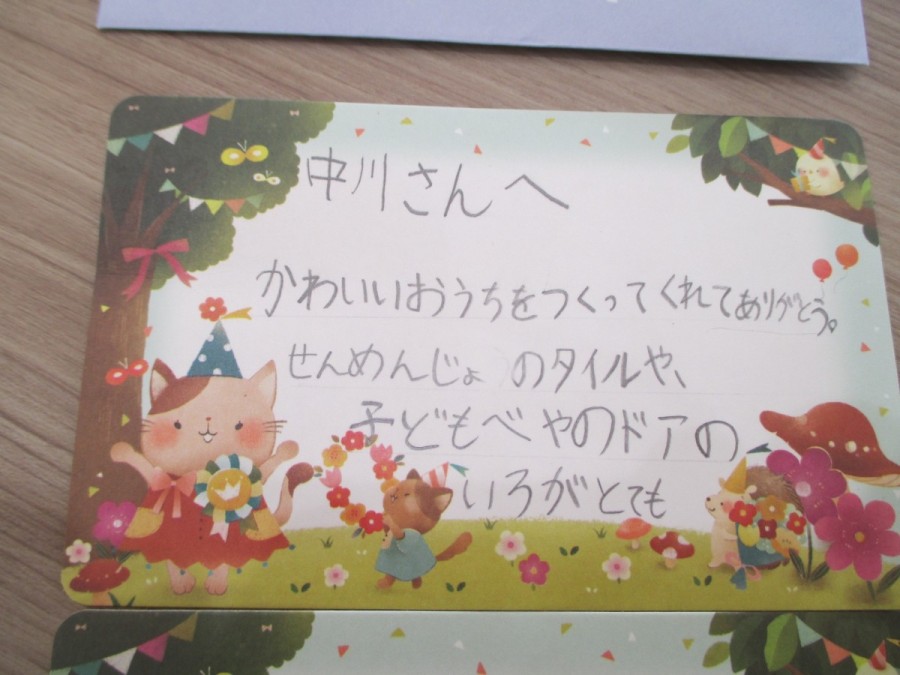 中川さんへ
かわいいおうちをつくってくれてありがとう。
せんめんじょのタイルや、
子どもべやのドアの
いろがとても